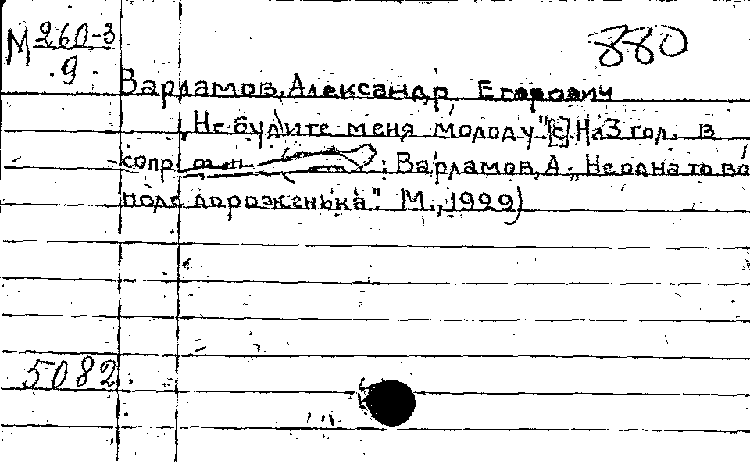 М 260-3
9
880
Варламов, Александр Егорович
„Не будите меня молоду" [с] На 3 гол. в
сопр : Варламов, А. „Не одна то во
поле дороженька". М., 1929)
5082